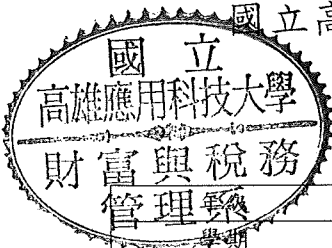 國立高
國立
高雄應用科技大學
財富與稅務
管理系
年級
學期